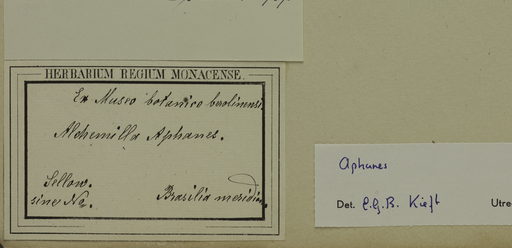 HERBARIUM REGIUM MONACENSE.
Ex Museo botanico berolinensi
Alchemilla Aphanes.
Sellow.
sine No.
Brasilia meridion.
Aphanes
Det. E.G.B. Kieft
Utre